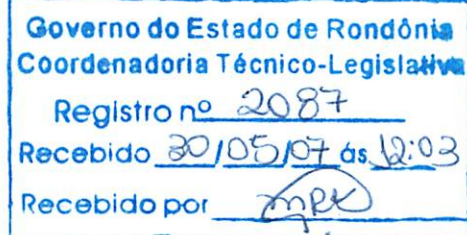 Governo do Estado de Rondônia
Coordenadoria Técnico-Legislativa
Registro nº 2087
Recebido 30/05/07 ás 12:03
Recebido por